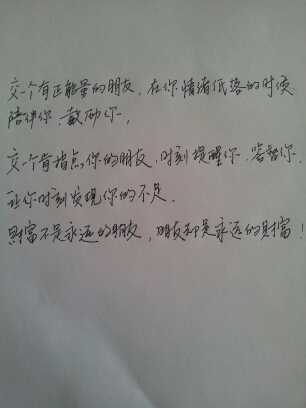 交一个有正能量的朋友，在你情绪低落的时候
陪伴你、鼓励你，
交一个肯指点你的朋友，时刻提醒你、监督你，
让你时刻发现你的不足．
财富不是永远的朋友，朋友却是永远的财富！